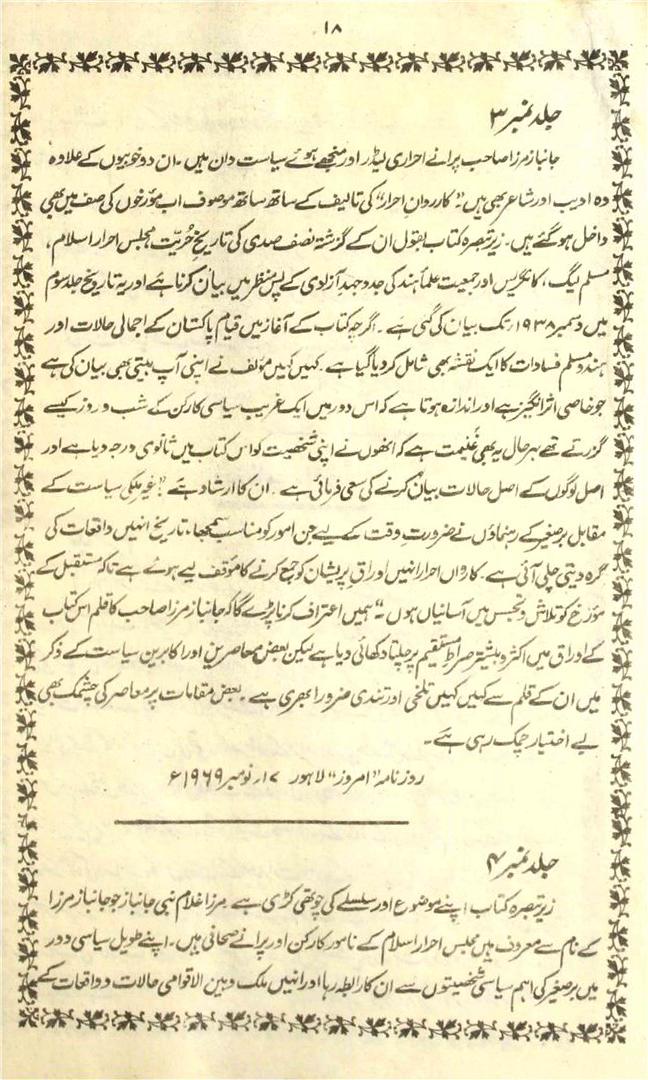 ۱۸
جلد نمبر ۳
جانباز مرزا صاحب پرانے احراری لیڈر اور منجھے ہوئے سیاست دان ہیں۔ ان دو خوبیوں کے علاوہ
وہ ادیب اور شاعر بھی ہیں۔ "کاروانِ احرار" کی تالیف کے ساتھ ساتھ موصوف اب مؤرخوں کی صف میں بھی
داخل ہو گئے ہیں۔ زیرِ تبصرہ کتاب بقول ان کے گزشتہ نصف صدی کی تاریخِ حُریّت، مجلس احرار اسلام،
مسلم لیگ، کانگریس اور جمعیت علمأ ہند کی جدوجہد آزادی کے پس منظر میں بیان کرنا ہے اور یہ تاریخ جلد سوم
میں دسمبر ۱۹۳۸ء تک بیان کی گئی ہے۔ اگرچہ کتاب کے آغاز میں قیام پاکستان کے اجمالی حالات اور
ہندو مسلم فسادات کا ایک نقشہ بھی شامل کر دیا گیا ہے۔ کہیں کہیں مؤلف نے اپنی آپ بیتی بھی بیان کی ہے
جو خاصی اثر انگیز ہے اور اندازہ ہوتا ہے کہ اس دور میں ایک غریب سیاسی کارکن کے شب و روز کیسے
گزرتے تھے بہرحال یہ بھی غنیمت ہے کہ انھوں نے اپنی شخصیت کو اس کتاب میں ثانوی درجہ دیا ہے اور
اصل لوگوں کے اصل حالات بیان کرنے کی سعی فرمائی ہے۔ ان کا ارشاد ہے "غیر ملکی سیاست کے
مقابل برصغیر کے رہنماؤں نے ضرورتِ وقت کے لیے جن امور کو مناسب سمجھا، تاریخ انہیں واقعات کی
گرہ دیتی چلی آئی ہے۔ کارواں احرار انہیں اوراقِ پریشان کو جمع کرنے کا مؤقف لیے ہوئے ہے تاکہ مستقبل کے
مؤرخ کو تلاش و تجسس میں آسانیاں ہوں۔" ہمیں اعتراف کرنا پڑے گا کہ جانباز مرزا صاحب کا قلم اس کتاب
کے اوراق میں اکثر و بیشتر صراطِ مستقیم پر چلتا دکھائی دیا ہے لیکن بعض معاصرین اور اکابرین سیاست کے ذکر
میں ان کے قلم سے کہیں کہیں تلخی اور تندی ضرور ابھری ہے۔ بعض مقامات پر معاصر کی چشمک بھی
بے اختیار چمک رہی ہے۔
روزنامہ "امروز" لاہور ۱۷ر نومبر ۱۹۶۹ء
جلد نمبر ۴
زیرِ تبصرہ کتاب اپنے موضوع اور سلسلے کی چوتھی کڑی ہے۔ مرزا غلام نبی جانباز جو جانباز مرزا
کے نام سے معروف ہیں مجلس احرار اسلام کے نامور کارکن اور پرانے صحافی ہیں۔ اپنے طویل سیاسی دور
میں برصغیر کی اہم سیاسی شخصیتوں سے ان کا رابطہ رہا اور انہیں ملک و بین الاقوامی حالات و واقعات کے